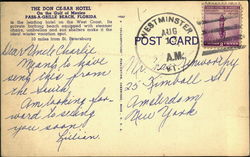 THE DON CE-SAR HOTEL
On the Gulf of Mexico
PASS-A-GRILLE BEACH, FLORIDA
is the leading hotel on the West Coast. Its
private bathing beach equipped with steamer
chairs, umbrellas and sun shelters make it the
ideal winter vacation spot.
10 miles from St. Petersburg
Dear Uncle Charlie,
Mama to have
send this from
the South
Am looking for-
ward to seeing
you soon!
Lilian.
WESTMINSTER
AUG
A.M.
POST CARD
25 Kimball St
Amsterdam
New York